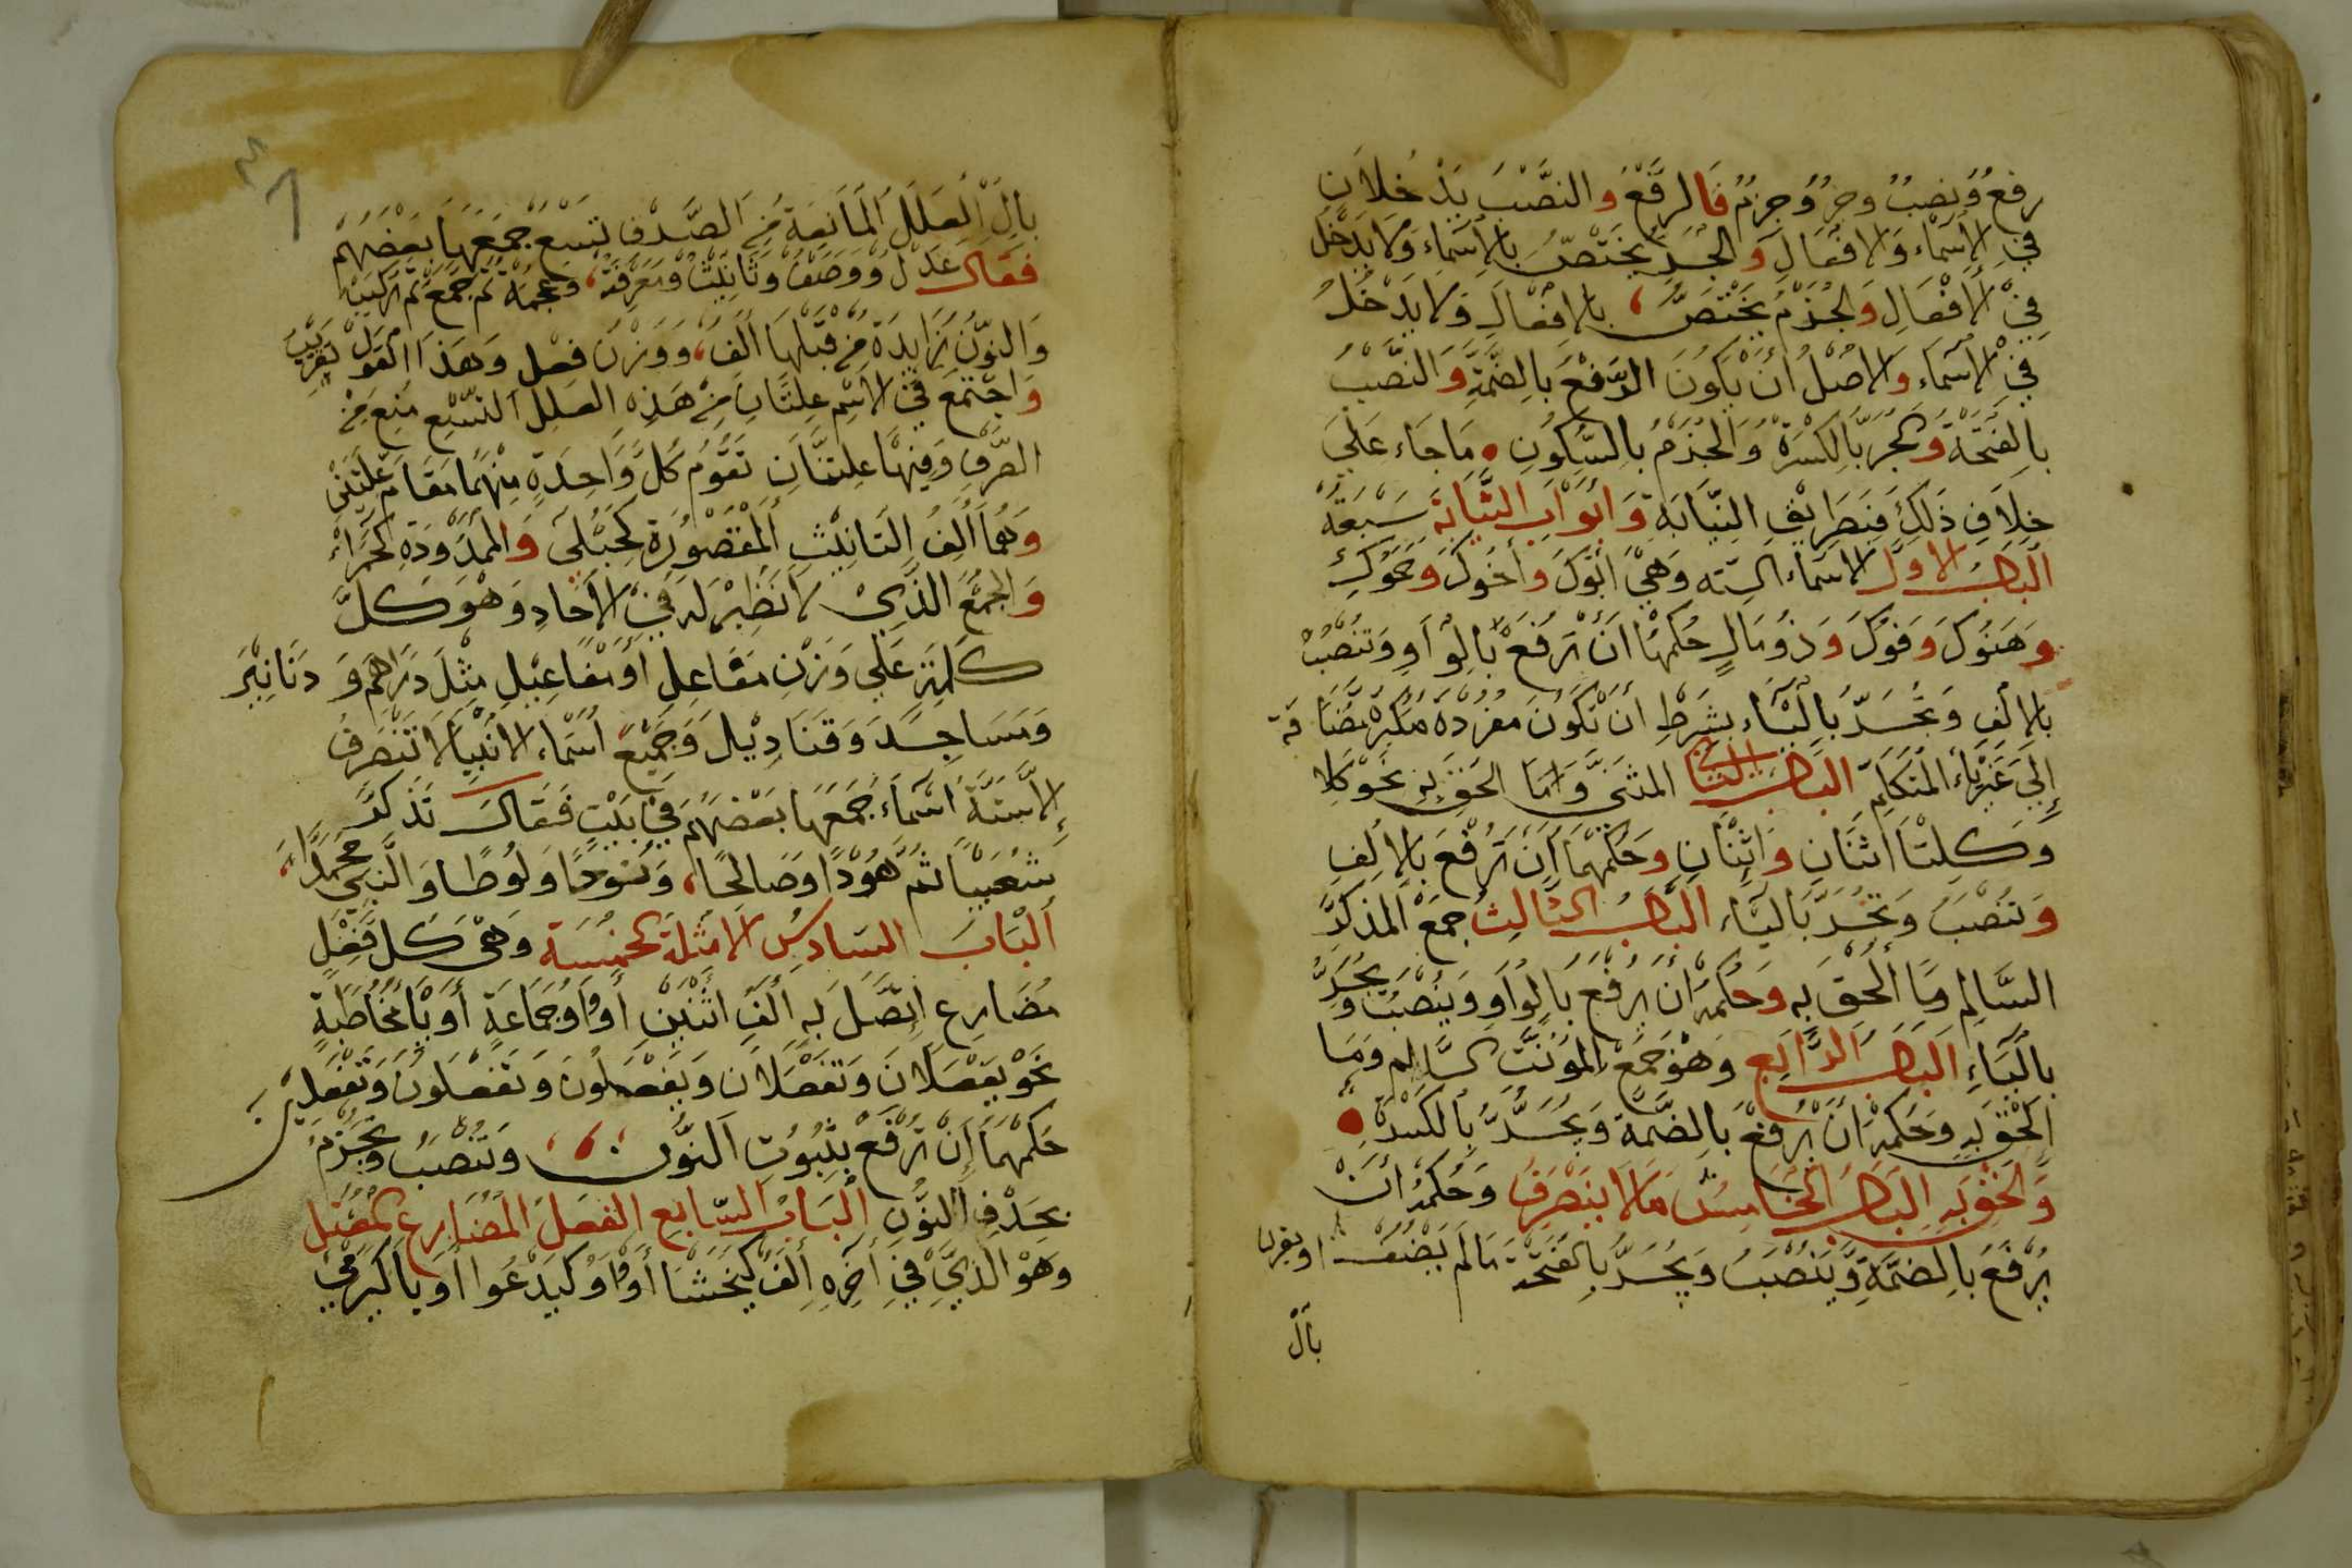 رفع ونصب وجر وجزم فالرفع والنصب يدخلان
في الاسماء والافعال والجر يختص بالاسماء ولا يدخل
في الافعال والجزم يختص بالافعال ولا يدخل
في الاسماء والاصل ان يكون الرفع بالضمة والنصب
بالفتحة والجر بالكسرة والجزم بالسكون ما جاء على
خلاف ذلك فبطريق النيابة وابواب النيابة سبعة
الباب الاول الاسماء الستة وهي ابوك واخوك وحموك
وهنوك وفوك وذومال حكمها ان ترفع بالواو وتنصب
بالالف وتجر بالياء بشرط ان تكون مفردة مكبرة مضافة
إلى غير ياء المتكلم الباب الثاني المثنى وما الحق به نحو كلا
وكلتا اثنان واثنتان وحكمهما ان ترفع بالالف
وتنصب وتجر بالياء الباب الثالث جمع المذكر
السالم وما ألحق به وحكمه ان يرفع بالواو وينصب ويجر
بالياء الباب الرابع وهو جمع المؤنث السالم وما
الحق به وحكمه ان يرفع بالضمة ويجر بالكسرة
والحق به الباب الخامس مالا ينصرف وحكمه ان
يرفع بالضمة وينصب ويجر بالفتحة ما لم يضف او يقرن
بأل
بال العلل المانعة من الصرف تسع جمعها بعضهم
فقال عدل ووصف وتانيث ومعرفة وعجمة ثم جمع ثم تركيب
والنون زايدة من قبلها ألف ووزن فعل وهذا القول تقريب
واجتمع في الاسم علتان من هذه العلل التسع منع من
الصرف وفيها علتان تقوم كل واحدة منهما مقام علتين
وهما ألف التانيث المقصورة كحبلى والممدودة كحمراء
والجمع الذي لا نظير له في الأحاد وهو كل
كلمة على وزن مفاعل او مفاعيل مثل دراهم ودنانير
ومساجد وقناديل وجميع اسماء الانبيا لا تنصرف
إلا ستة اسماء جمعها بعضهم في بيت فقال تذكر
شعيبا ثم هودا وصالحا ونوحا ولوطا والنبي محمدا
ألباب السادس الامثلة الخمسة وهي كل فعل
مضارع اتصل به ألف اثنين أو واو جماعة أو يا مخاطبة
نحو يفعلان وتفعلان ويفعلون وتفعلون وتفعلين
حكمهما إن ترفع بثبوت النون وتنصب وتجزم
بحذف النون ألباب السابع الفعل المضارع المعتل
وهو الذي في أخره ألف كيخشا أو واو كيدعوا أو يا كيرمي